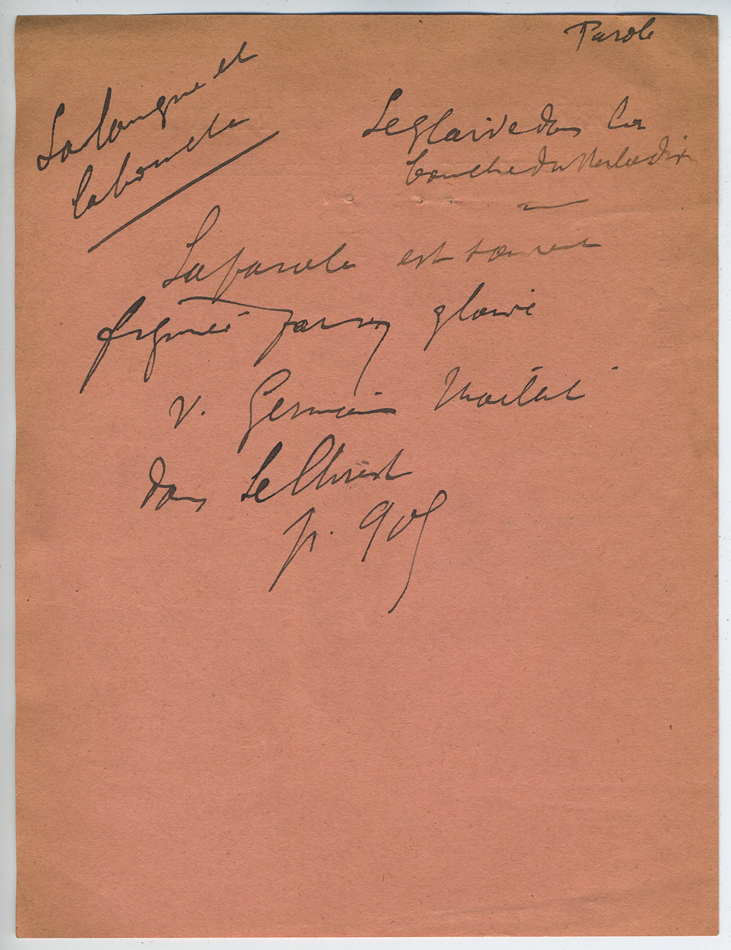 Parole
La langue et
la bouche
Le glaive dans la
bouche du Verbe divin
La parole est souvent
figurée par un glaive
v. Germain Maillet
dans Le Christ
p. 905